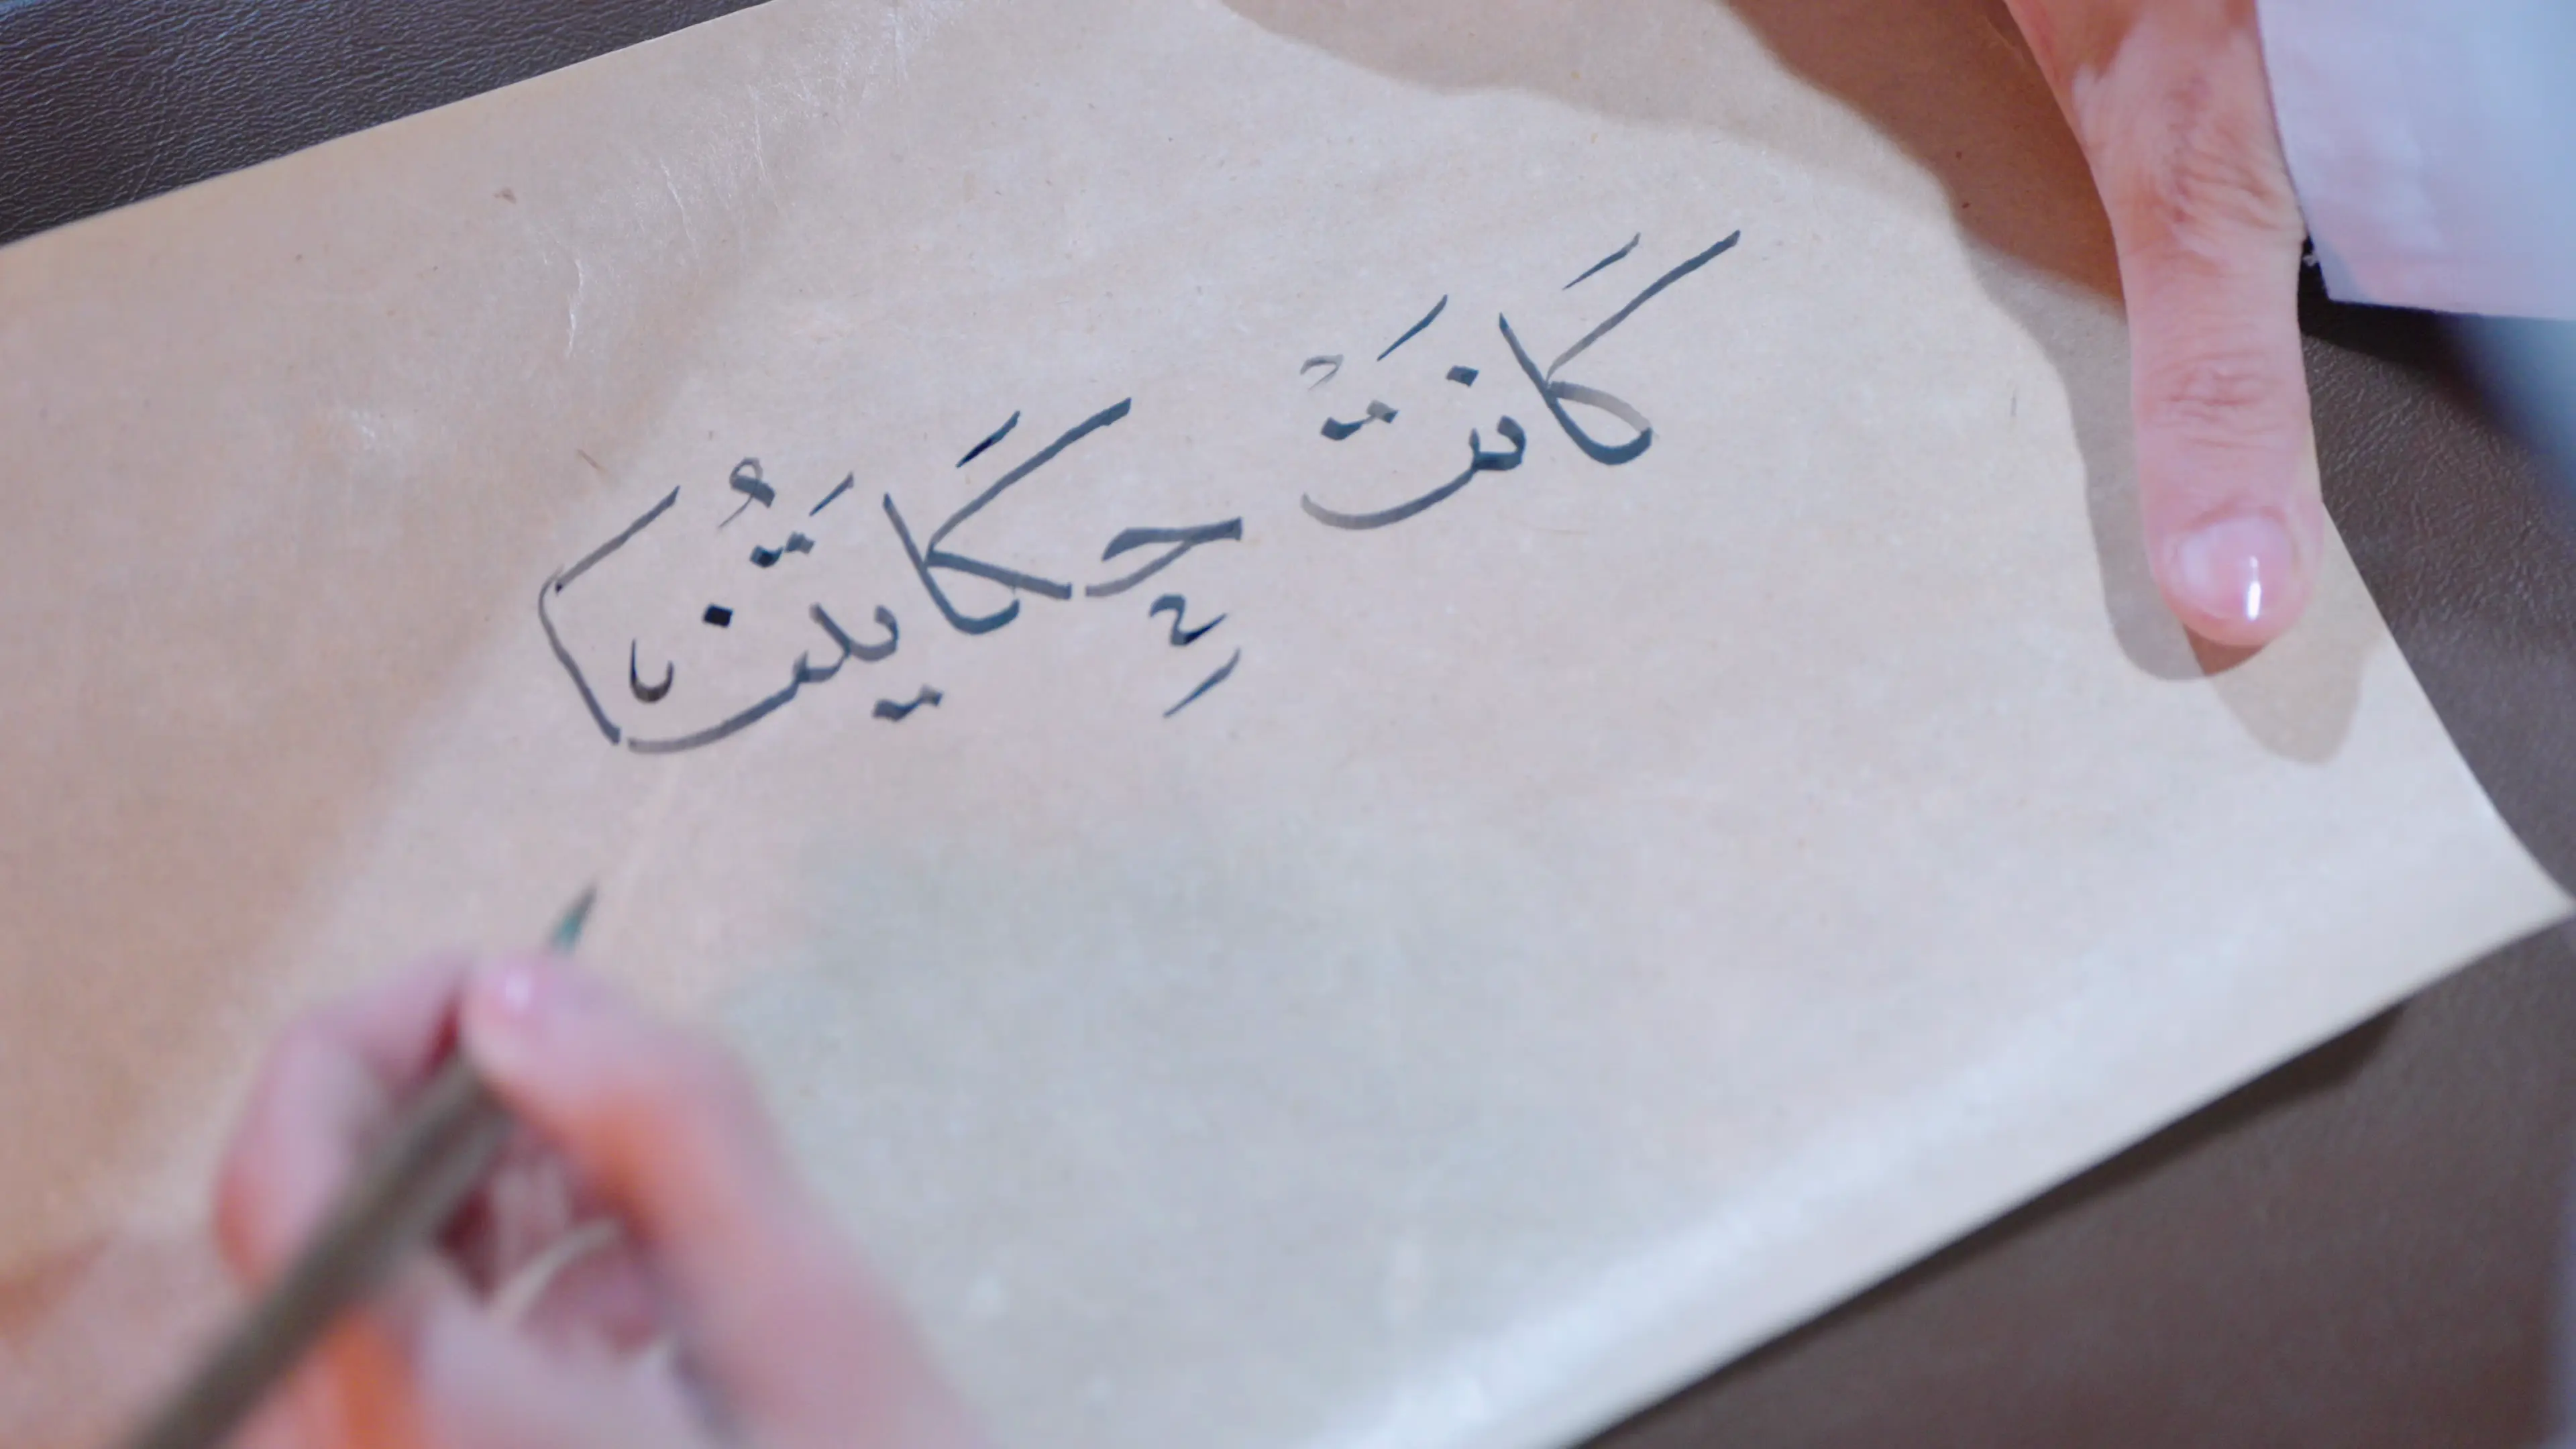 كَانَتْ حِكَايَتُنَا